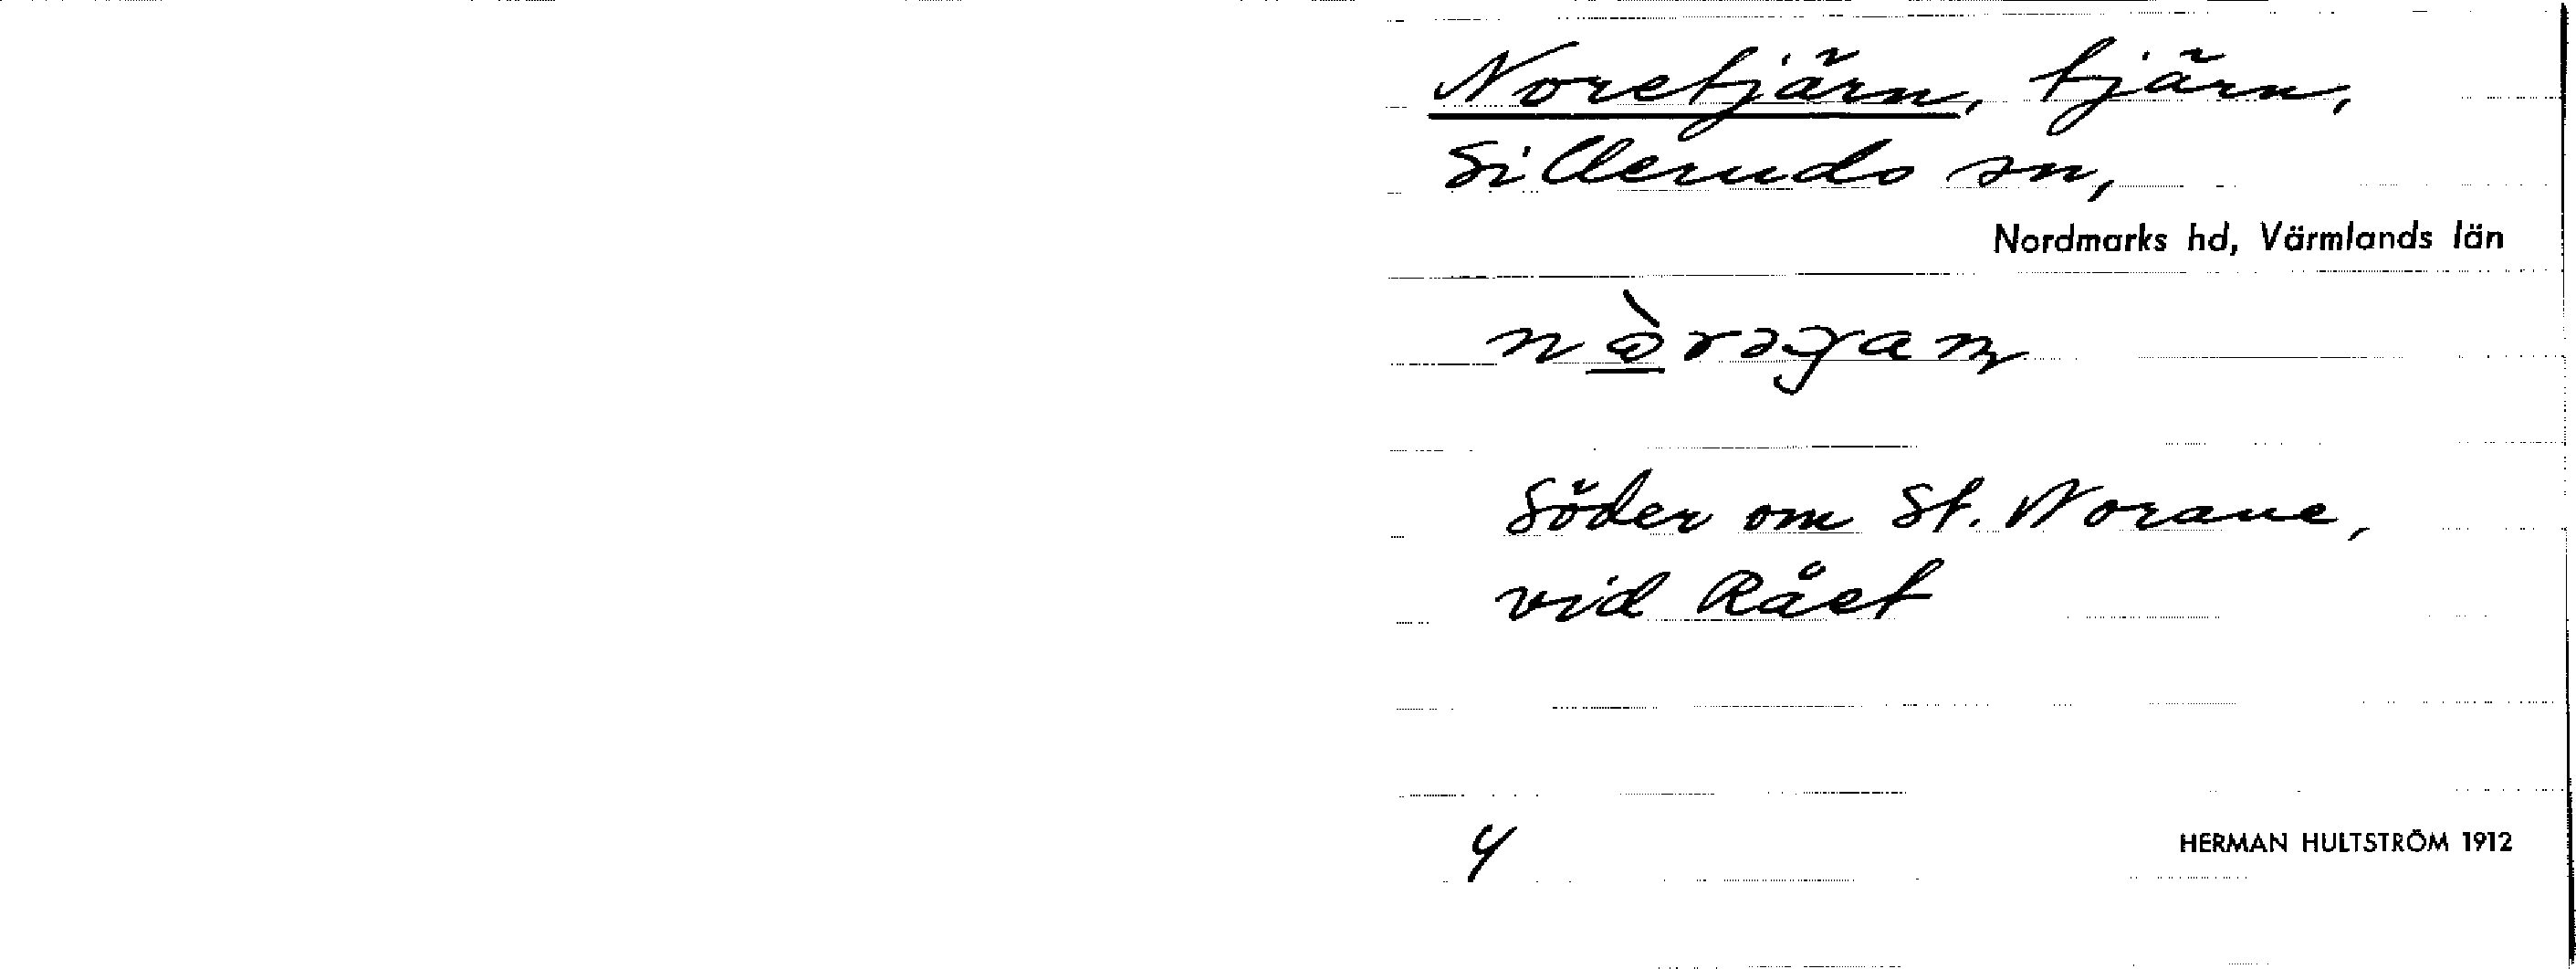 Noretjärn, tjärn,
Silleruds sn,
Nordmarks hd, Värmlands län
Söder om St. Norane,
vid Rået
4
HERMAN HULTSTRÖM 1912